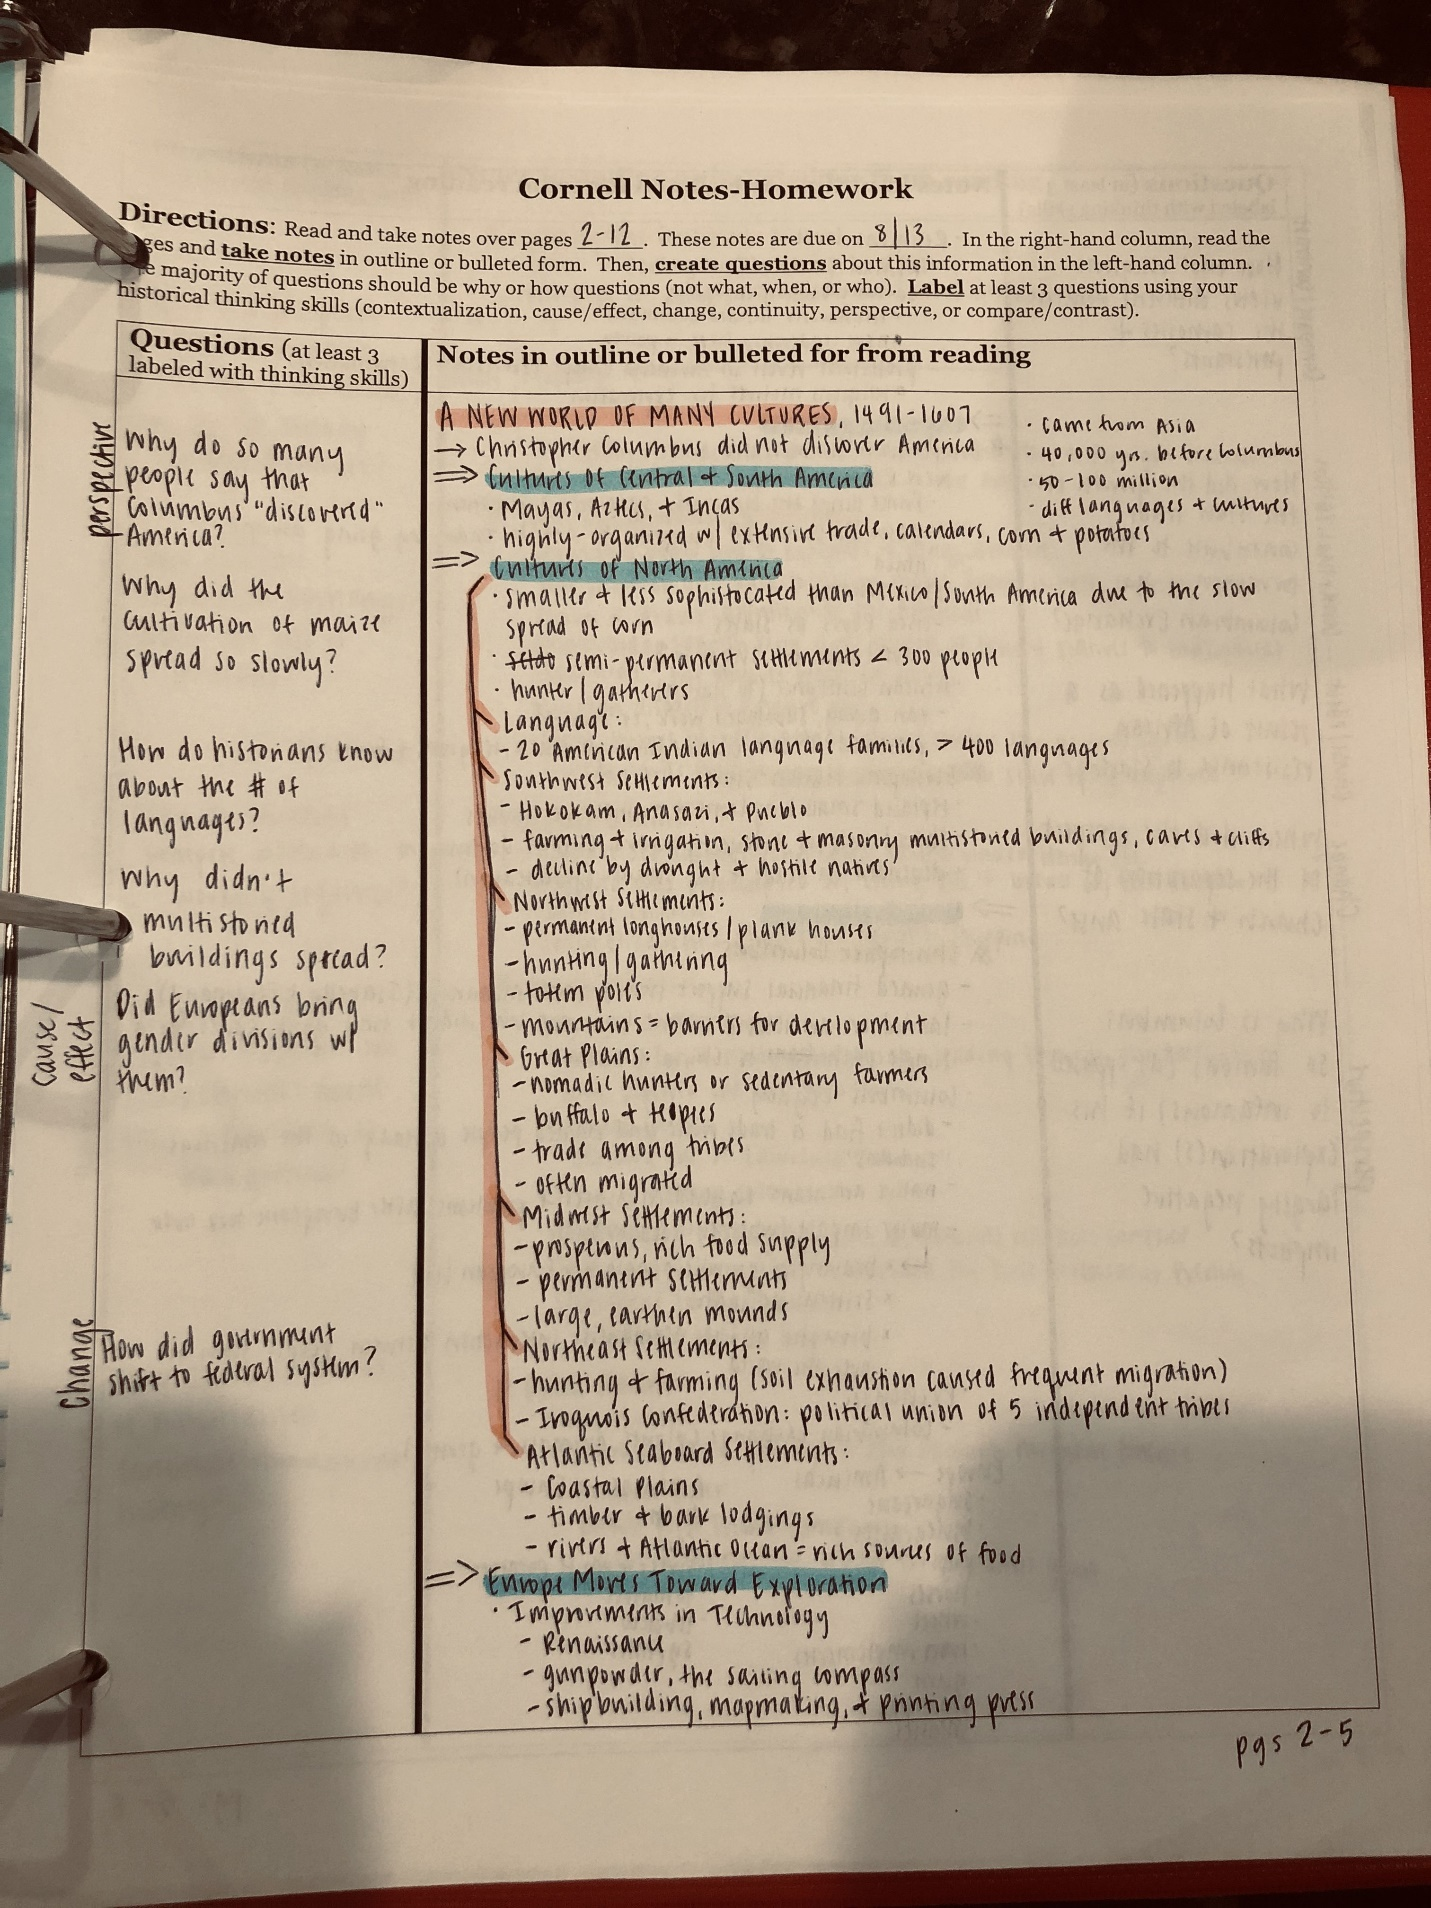 Cornell Notes-Homework
Directions: Read and take notes over pages 2-12. These notes are due on 8/13. In the right-hand column, read the
ges and take notes in outline or bulleted form. Then, create questions about this information in the left-hand column.
e majority of questions should be why or how questions (not what, when, or who). Label at least 3 questions using your
historical thinking skills (contextualization, cause/effect, change, continuity, perspective, or compare/contrast).
Questions (at least 3
labeled with thinking skills)
perspective
Why do so many
people say that
Columbus "discovered"
America?
Why did the
cultivation of maize
spread so slowly?
How do historians know
about the # of
languages?
Why didn't
multistoried
buildings spread?
cause/
effect
Did Europeans bring
gender divisions w/
them?
Change
How did government
shift to federal system?
Notes in outline or bulleted for from reading
A NEW WORLD OF MANY CULTURES, 1491-1607
→ Christopher Columbus did not discover America
· came from Asia
· 40,000 yrs. before Columbus
· 50-100 million
· diff languages + cultures
⇒ Cultures of Central + South America
· Mayas, Aztecs, + Incas
· highly-organized w/ extensive trade, calendars, corn + potatoes
⇒ Cultures of North America
· smaller + less sophistocated than Mexico/South America due to the slow
spread of corn
· semi-permanent settlements < 300 people
· hunter/gatherers
Language:
- 20 American Indian language families, > 400 languages
Southwest Settlements:
- Hokokam, Anasazi, + Pueblo
- farming + irrigation, stone + masonry multistoried buildings, caves + cliffs
- decline by drought + hostile natives
Northwest Settlements:
- permanent longhouses/plank houses
- hunting/gathering
- totem poles
- mountains = barriers for development
Great Plains:
- nomadic hunters or sedentary farmers
- buffalo + teepies
- trade among tribes
- often migrated
Midwest Settlements:
- prosperous, rich food supply
- permanent settlements
- large, earthen mounds
Northeast Settlements:
- hunting + farming (soil exhaustion caused frequent migration)
- Iroquois Confederation: political union of 5 independent tribes
Atlantic Seaboard Settlements:
- Coastal Plains
- timber + bark lodgings
- rivers + Atlantic Ocean = rich sources of food
⇒ Europe Moves Toward Exploration
· Improvements in Technology
- Renaissance
- gunpowder, the sailing compass
- shipbuilding, mapmaking, + printing press
pgs 2-5